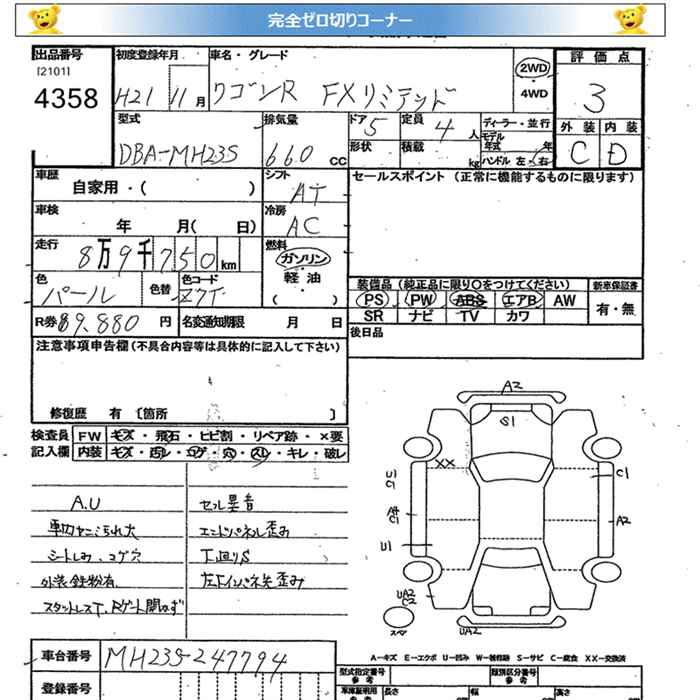 完全ゼロ切りコーナー
出品番号
[2101]
4358
初度登録年月
H21 11月
車名・グレード
ワゴンR FXリミテッド
2WD
・
4WD
評価点
3
型式
DBA-MH23S
排気量
660cc
ドア
5
定員
4人
ディーラー・並行
モデル
年式 年
外装
C
内装
D
形状
積載
kg
ハンドル 左・右
車歴
自家用・( )
シフト
AT
セールスポイント (正常に機能するものに限ります)
車検
年 月( 日)
冷房
AC
走行
8万9千750km
燃料
ガソリン
軽油
( )
色
パール
色替
色コード
Z7T
装備品 (純正品に限り○をつけてください)
新車保証書
PS PW ABS エアB AW
有・無
SR ナビ TV カワ
R券 ¥9.880 円
名変通知期限 月 日
後日品
注意事項申告欄(不具合内容等は具体的に記入して下さい)
修復歴 有 〔箇所 〕
検査員
記入欄
FW キズ・飛石・ヒビ割・リペア跡・×要
内装 キズ・汚レ・コゲ・穴・スレ・キレ・破レ
A.U
車内ヤニ汚れ大
シートしみ、コゲ穴
外装鉄粉有
スタットレスT.Rゲート開かず
セル異音
エンドパネル歪み
下廻りS
左下インパネ先歪み
A2
S1
XX
U1
C1
C1
A4
C1
A2
U1
UA2
C2
スペア
UA2
A-キズ E-エクボ U-凹み W-補修跡 S-サビ C-腐食 XX-交換済
車台番号
MH23S-247794
登録番号
型式指定番号
参考
類別区分番号
車庫証明用
参考
長さ
幅
高さ